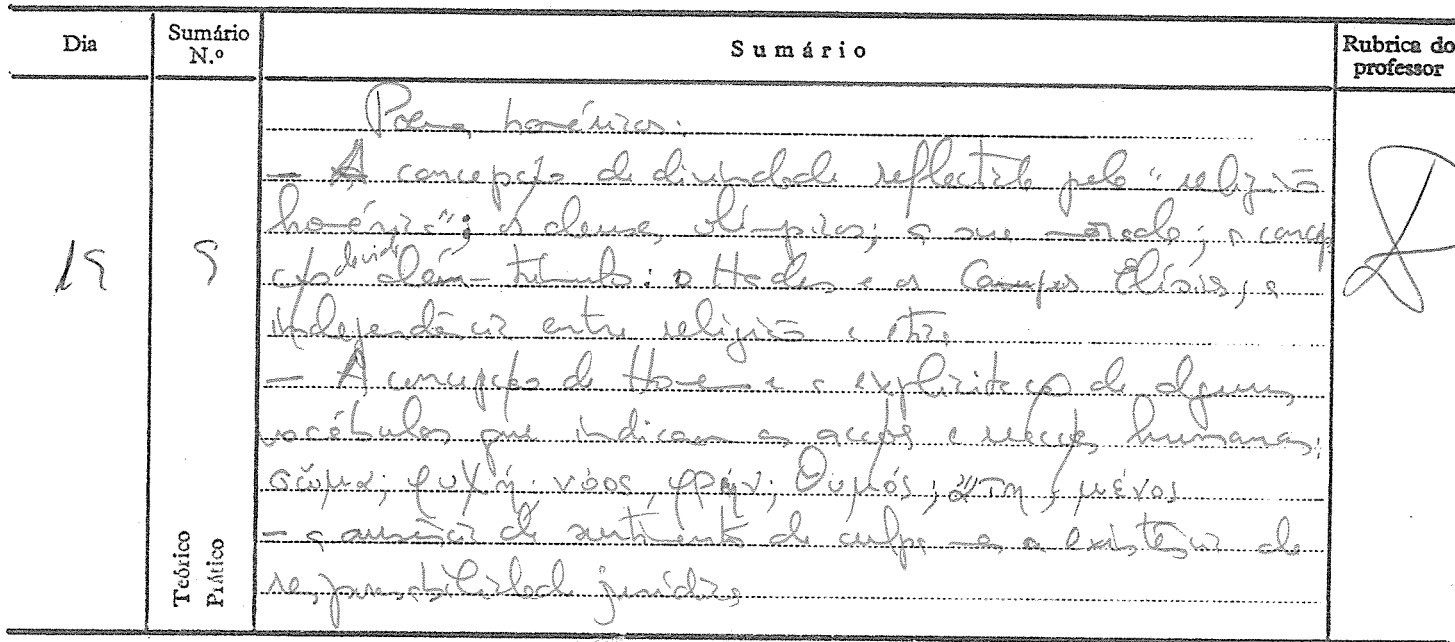 Dia
Sumário N.º
Sumário
Rubrica do professor
19
9
Teórico
Prático
Poemas homéricos:
— A concepção de divindade reflectida pela "religião
homérica"; os deuses olímpicos; a sua morada; a concep
ção de vida além-túmulo: o Hades e os Campos Elísios; a
independência entre religião e ética
— A concepção de Homem e a explicitação de alguns
vocábulos que indicam as acções e reacções humanas:
σῶμα; ψυχή; νόος, φρήν; θυμός; ἄτη; μένος
— a ausência de sentimento de culpa mas a existência de
responsabilidade jurídica